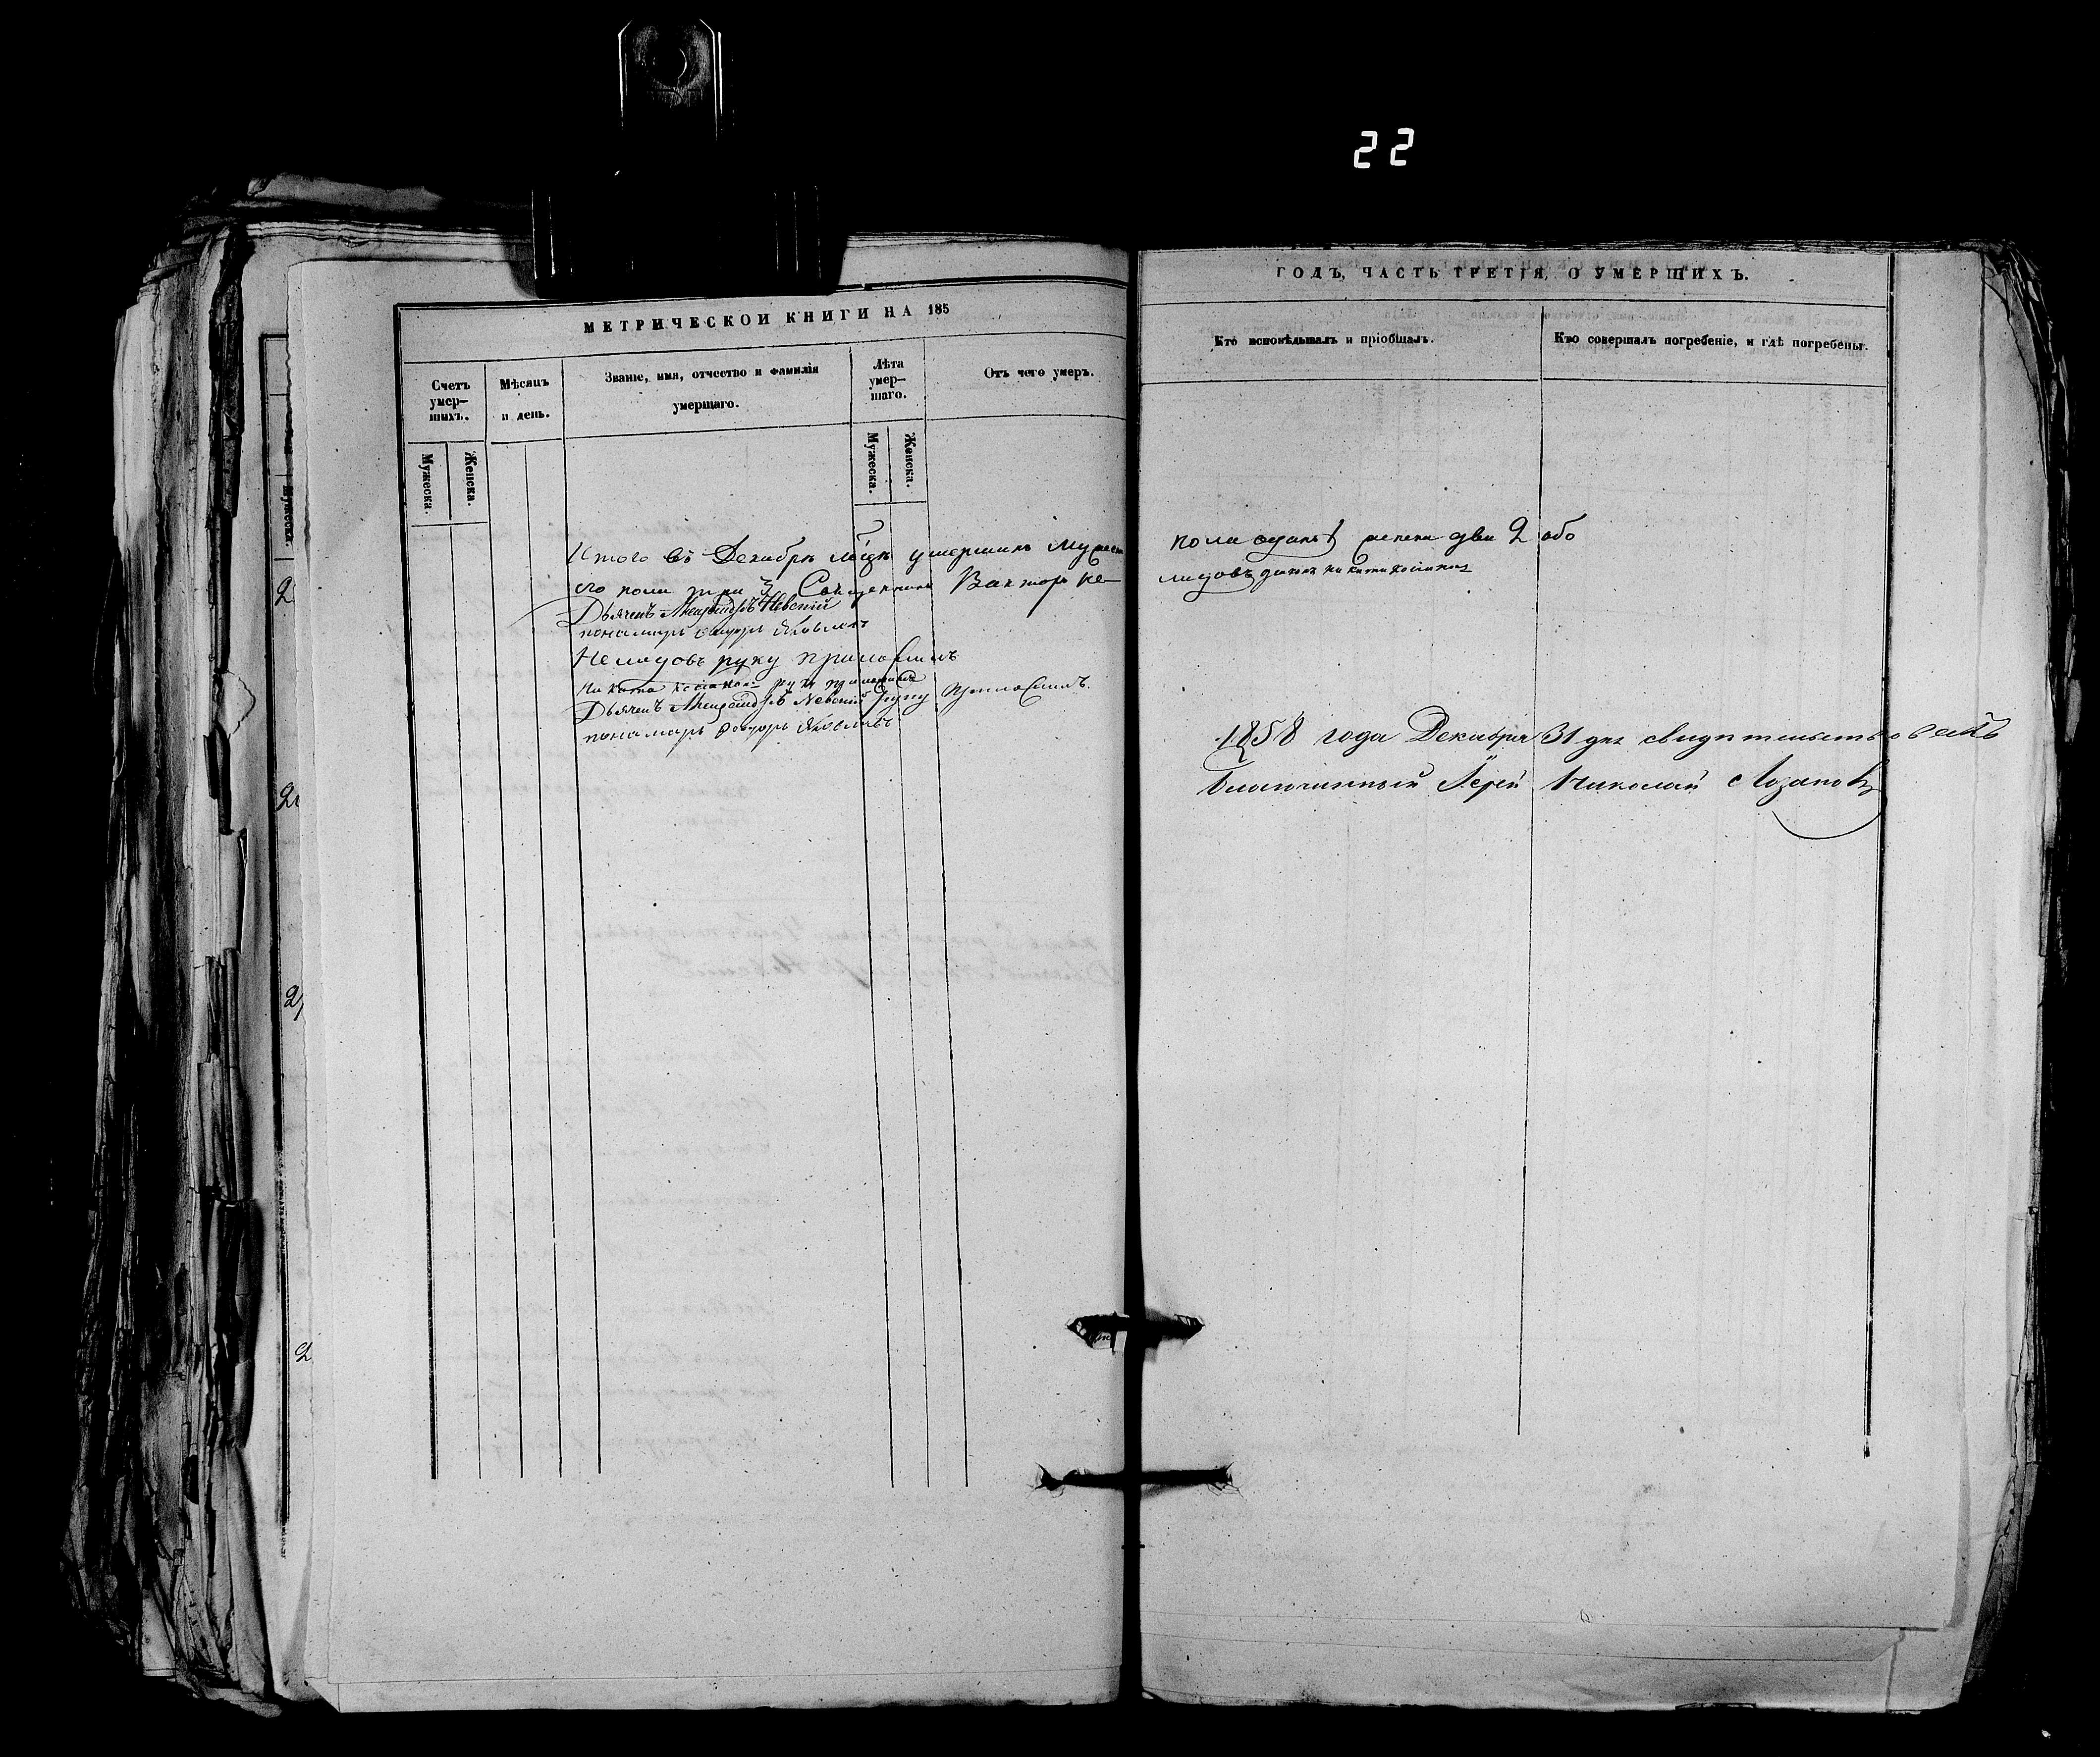 22
МЕТРИЧЕСКОЙ КНИГИ НА 185
Счетъ умер-
шихъ.
Мѣсяцъ
и день.
Званіе, имя, отчество и фамилія
умершаго.
Лѣта
умер-
шаго.
Отъ чего умеръ.
Мужеска.
Женска.
Мужеска.
Женска.
Итого въ Декабрѣ мѣсяцѣ умершихъ мужеск
го пола три 3 Священникъ Викторъ Не-
Дьячекъ Александръ Невскій
пономарь Ѳедоръ Яковлевъ
Нелидовъ руку приложилъ
Никита руку приложилъ
Дьячекъ Александръ Невскій руку приложилъ.
пономарь Ѳедоръ Яковлевъ
ГОДЪ, ЧАСТЬ ТРЕТІЯ, О УМЕРШИХЪ.
Кто исповѣдывалъ и пріобщалъ.
Кто совершалъ погребеніе, и гдѣ погребены.
пола одинъ 1 женска два 2 обо
лидовъ дьякъ Никита
1858 года Декабря 31 дня свидѣтельствовалъ
Благочинный Іерей Николай Лозановъ
2
2
2
2